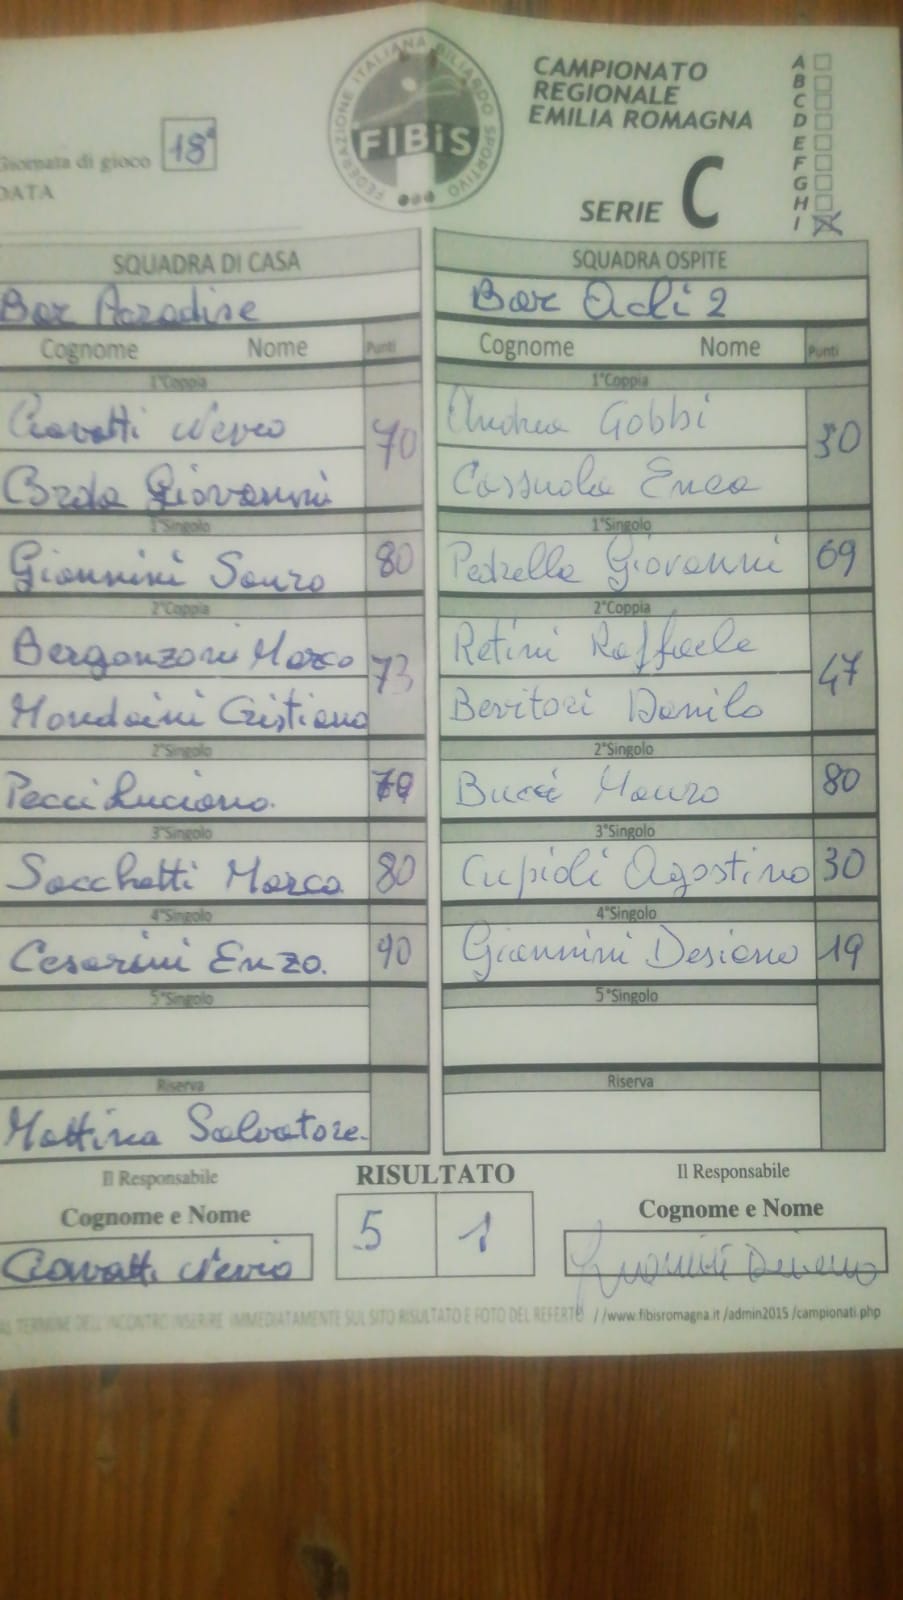 FEDERAZIONE ITALIANA BILIARDO SPORTIVO
FIBiS
CAMPIONATO
REGIONALE
EMILIA ROMAGNA
SERIE C
A
B
C
D
E
F
G
H
I
Giornata di gioco 18ª
DATA
SQUADRA DI CASA SQUADRA OSPITE
Bar Paradise Bar Acli 2
Cognome Nome Punti Cognome Nome Punti
1°Coppia 1°Coppia
Ciavatti Nevio 70 Andrea Gobbi 30
Giovanni Enea
1°Singolo 1°Singolo
Giannini Sauro 80 Pedrella Giovanni 69
2°Coppia 2°Coppia
Bergonzoni Marco 73 Retini Raffaele 47
Mondaini Cristiano Bevitori Danilo
2°Singolo 2°Singolo
Pecci Luciano. Bucci Mauro 80
3°Singolo 3°Singolo
Sacchetti Marco 80 Cupioli Agostino 30
4°Singolo 4°Singolo
Cesarini Enzo. 90 Giannini Desiano 19
5°Singolo 5°Singolo
Riserva Riserva
Mattina Salvatore.
Il Responsabile RISULTATO Il Responsabile
Cognome e Nome 5 1 Cognome e Nome
Ciavatti Nevio
AL TERMINE DELL'INCONTRO INSERIRE IMMEDIATAMENTE SUL SITO RISULTATO E FOTO DEL REFERTO //www.fibisromagna.it /admin2015 /campionati.php